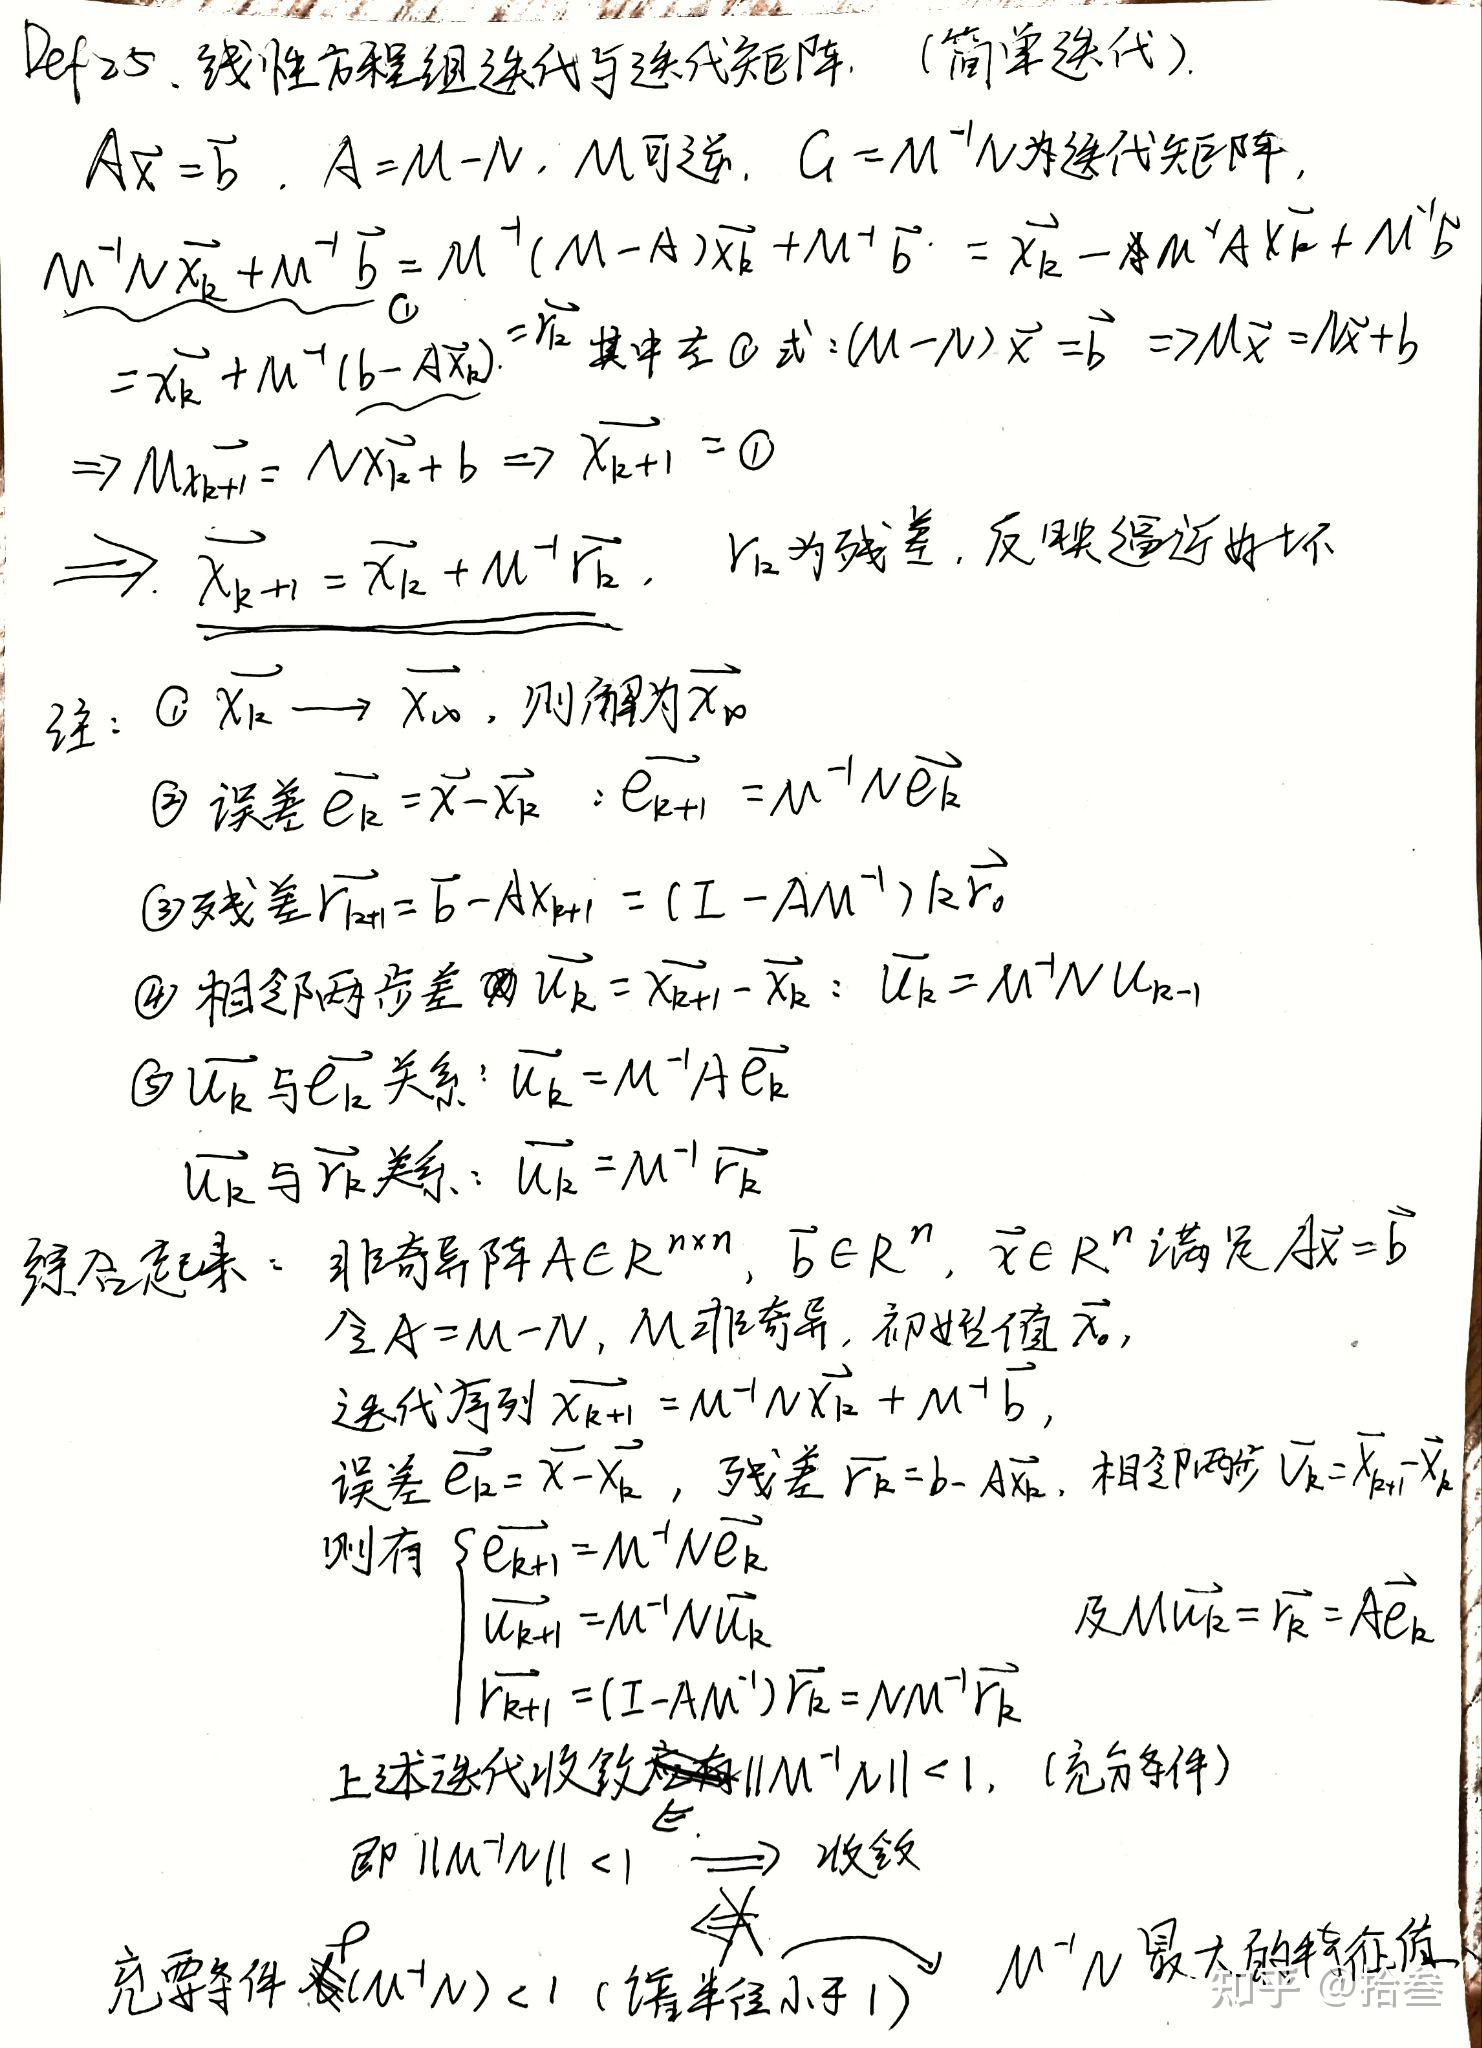 Def 25、线性方程组迭代与迭代矩阵.（简单迭代）.
Ax⃗ = b⃗ . A = M-N. M可逆. G = M⁻¹N为迭代矩阵,
M⁻¹Nx⃗ₖ + M⁻¹b⃗ = M⁻¹(M-A)x⃗ₖ + M⁻¹b⃗ = x⃗ₖ - M⁻¹Ax⃗ₖ + M⁻¹b⃗
①
= x⃗ₖ + M⁻¹(b-Ax⃗ₖ). = r⃗ₖ 其中在①式:(M-N)x⃗ = b⃗ => Mx⃗ = Nx⃗+b
=> Mx⃗ₖ₊₁ = Nx⃗ₖ+b => x⃗ₖ₊₁ = ①
=> x⃗ₖ₊₁ = x⃗ₖ + M⁻¹r⃗ₖ. rₖ为残差, 反映逼近好坏
注: ① x⃗ₖ → x⃗∞, 则解为x⃗∞
② 误差 e⃗ₖ = x⃗-x⃗ₖ : e⃗ₖ₊₁ = M⁻¹Ne⃗ₖ
③ 残差r⃗ₖ₊₁ = b⃗-Axₖ₊₁ = (I-AM⁻¹)kr⃗₀
④ 相邻两步差 u⃗ₖ = x⃗ₖ₊₁-x⃗ₖ : u⃗ₖ = M⁻¹Nuₖ₋₁
⑤ u⃗ₖ与e⃗ₖ关系: u⃗ₖ = M⁻¹Ae⃗ₖ
u⃗ₖ与r⃗ₖ关系: u⃗ₖ = M⁻¹r⃗ₖ
综合起来: 非奇异阵A∈Rⁿˣⁿ, b⃗∈Rⁿ, x⃗∈Rⁿ满足Ax⃗=b⃗
令A=M-N, M非奇异, 初始值x⃗₀,
迭代序列x⃗ₖ₊₁ = M⁻¹Nx⃗ₖ + M⁻¹b⃗,
误差e⃗ₖ = x⃗-x⃗ₖ, 残差r⃗ₖ = b-Ax⃗ₖ, 相邻两步 U⃗ₖ = x⃗ₖ₊₁-x⃗ₖ
则有 { e⃗ₖ₊₁ = M⁻¹Ne⃗ₖ
u⃗ₖ₊₁ = M⁻¹Nu⃗ₖ 及Mu⃗ₖ = r⃗ₖ = Ae⃗ₖ
r⃗ₖ₊₁ = (I-AM⁻¹)r⃗ₖ = NM⁻¹r⃗ₖ
上述迭代收敛 ⇐ ||M⁻¹N||<1, (充分条件)
即||M⁻¹N||<1 ⇒ 收敛
⇍
充要条件 ρ(M⁻¹N)<1 (谱半径小于1) M⁻¹N最大的特征值
知乎 @拾叁